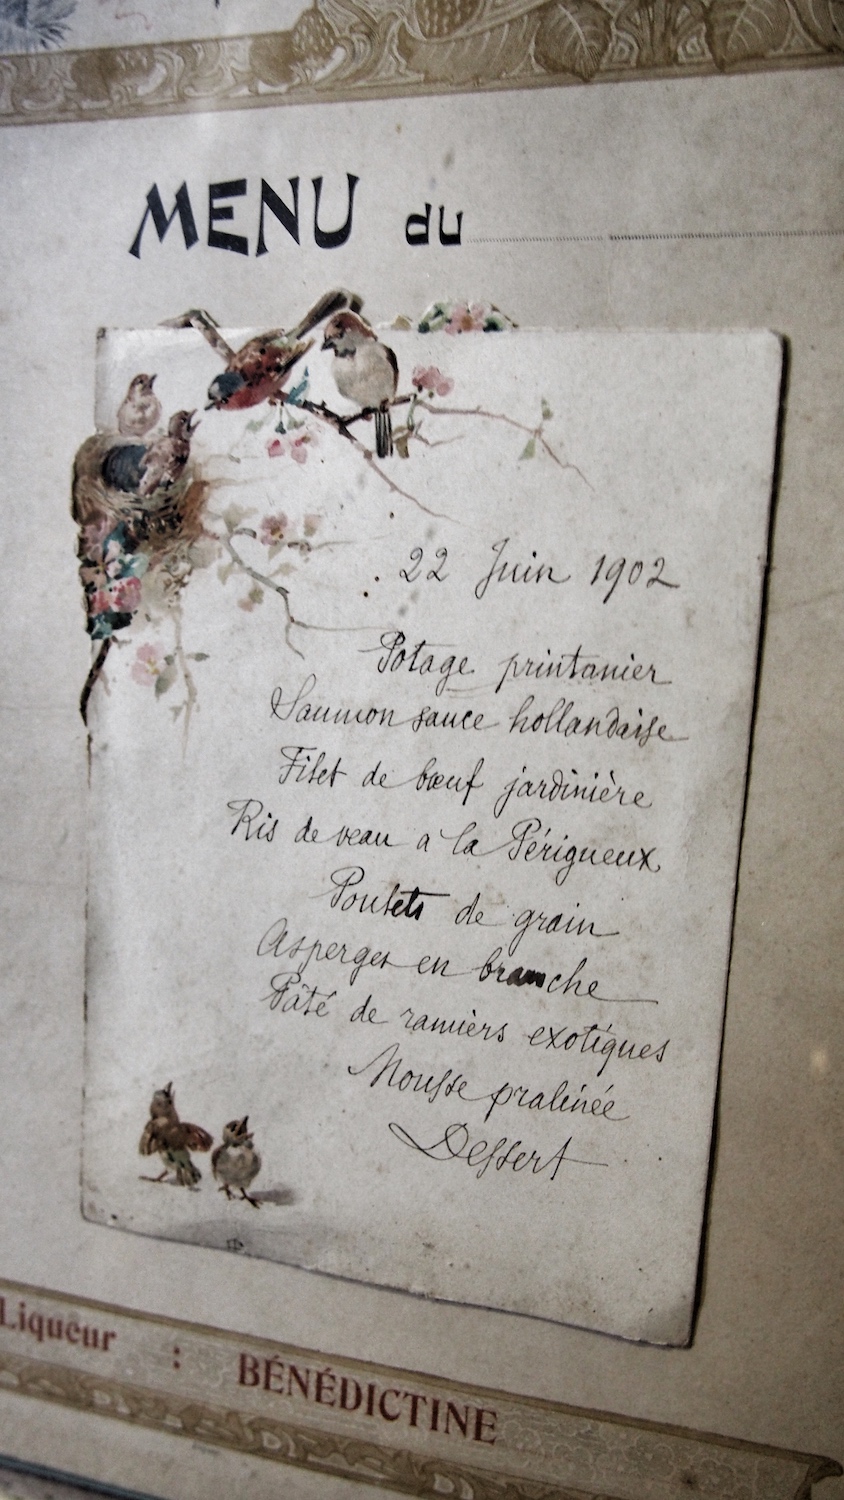 MENU du
22 Juin 1902
Potage printanier
Saumon sauce hollandaise
Filet de bœuf jardinière
Ris de veau a la Périgueux
Poulets de grain
Asperges en branche
Pâté de ramiers exotiques
Mousse pralinée
Dessert
Liqueur : BÉNÉDICTINE